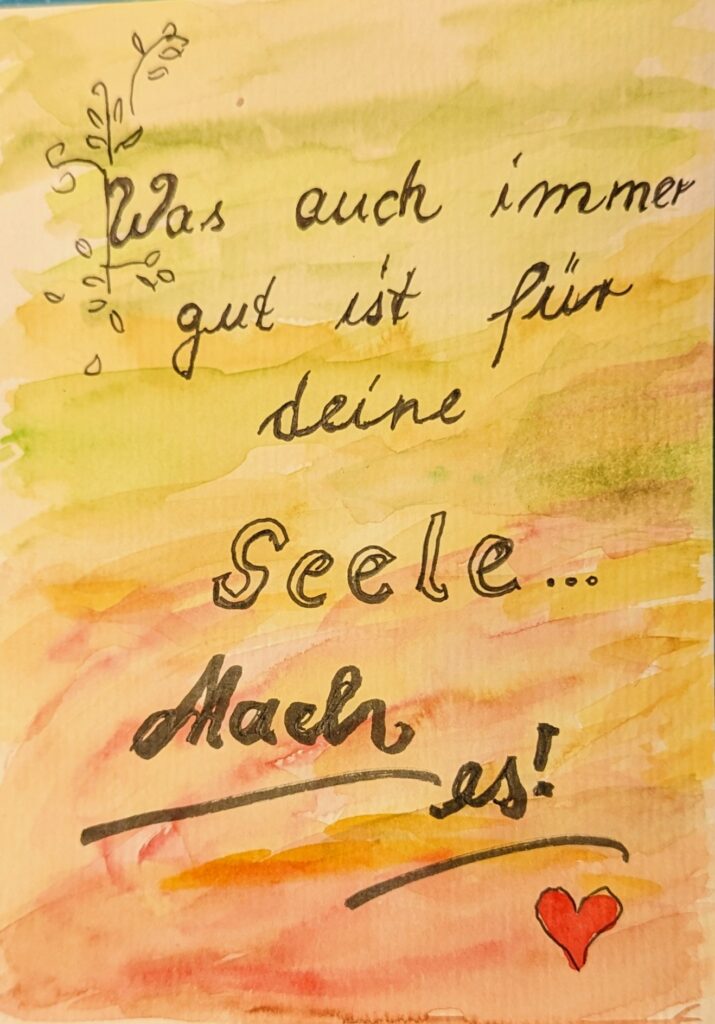 Was auch immer
gut ist für
deine
Seele...
Mach
es!